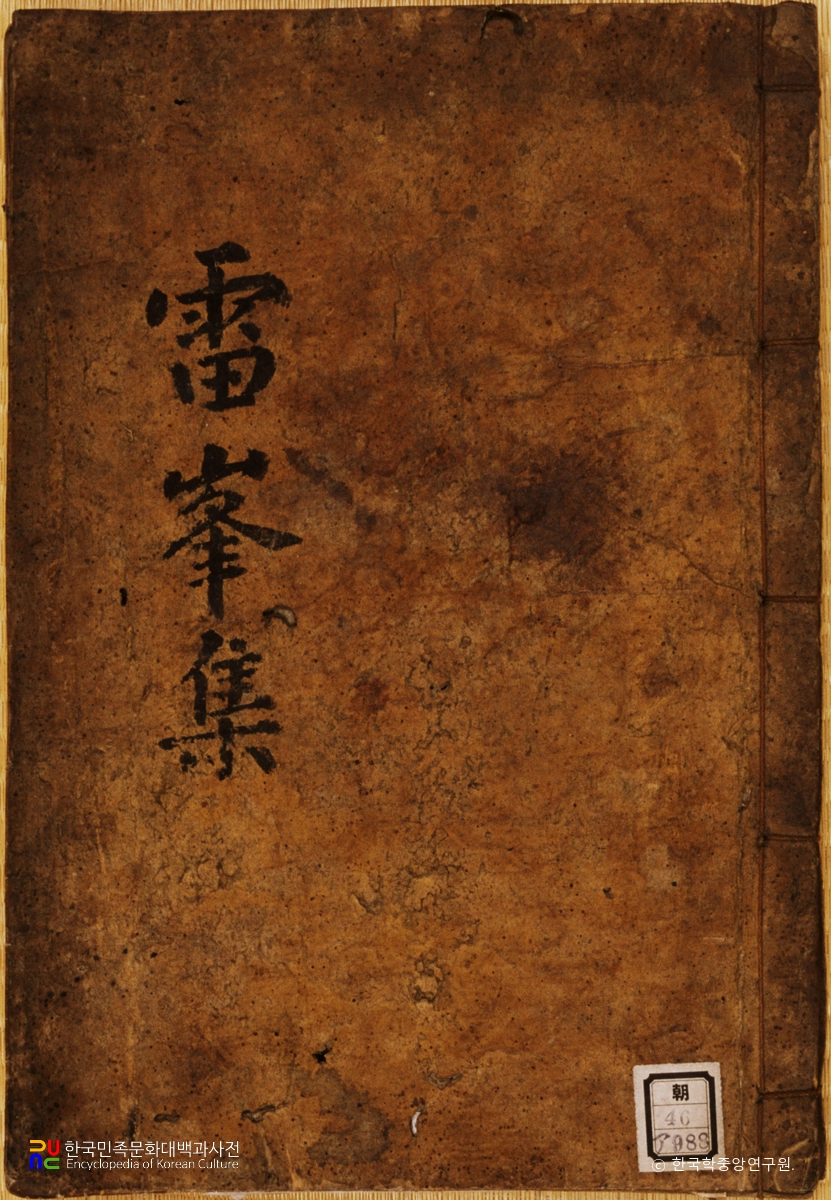 雷峯集
朝
46
한국민족문화대백과사전
Encyclopedia of Korean Culture
© 한국학중앙연구원.